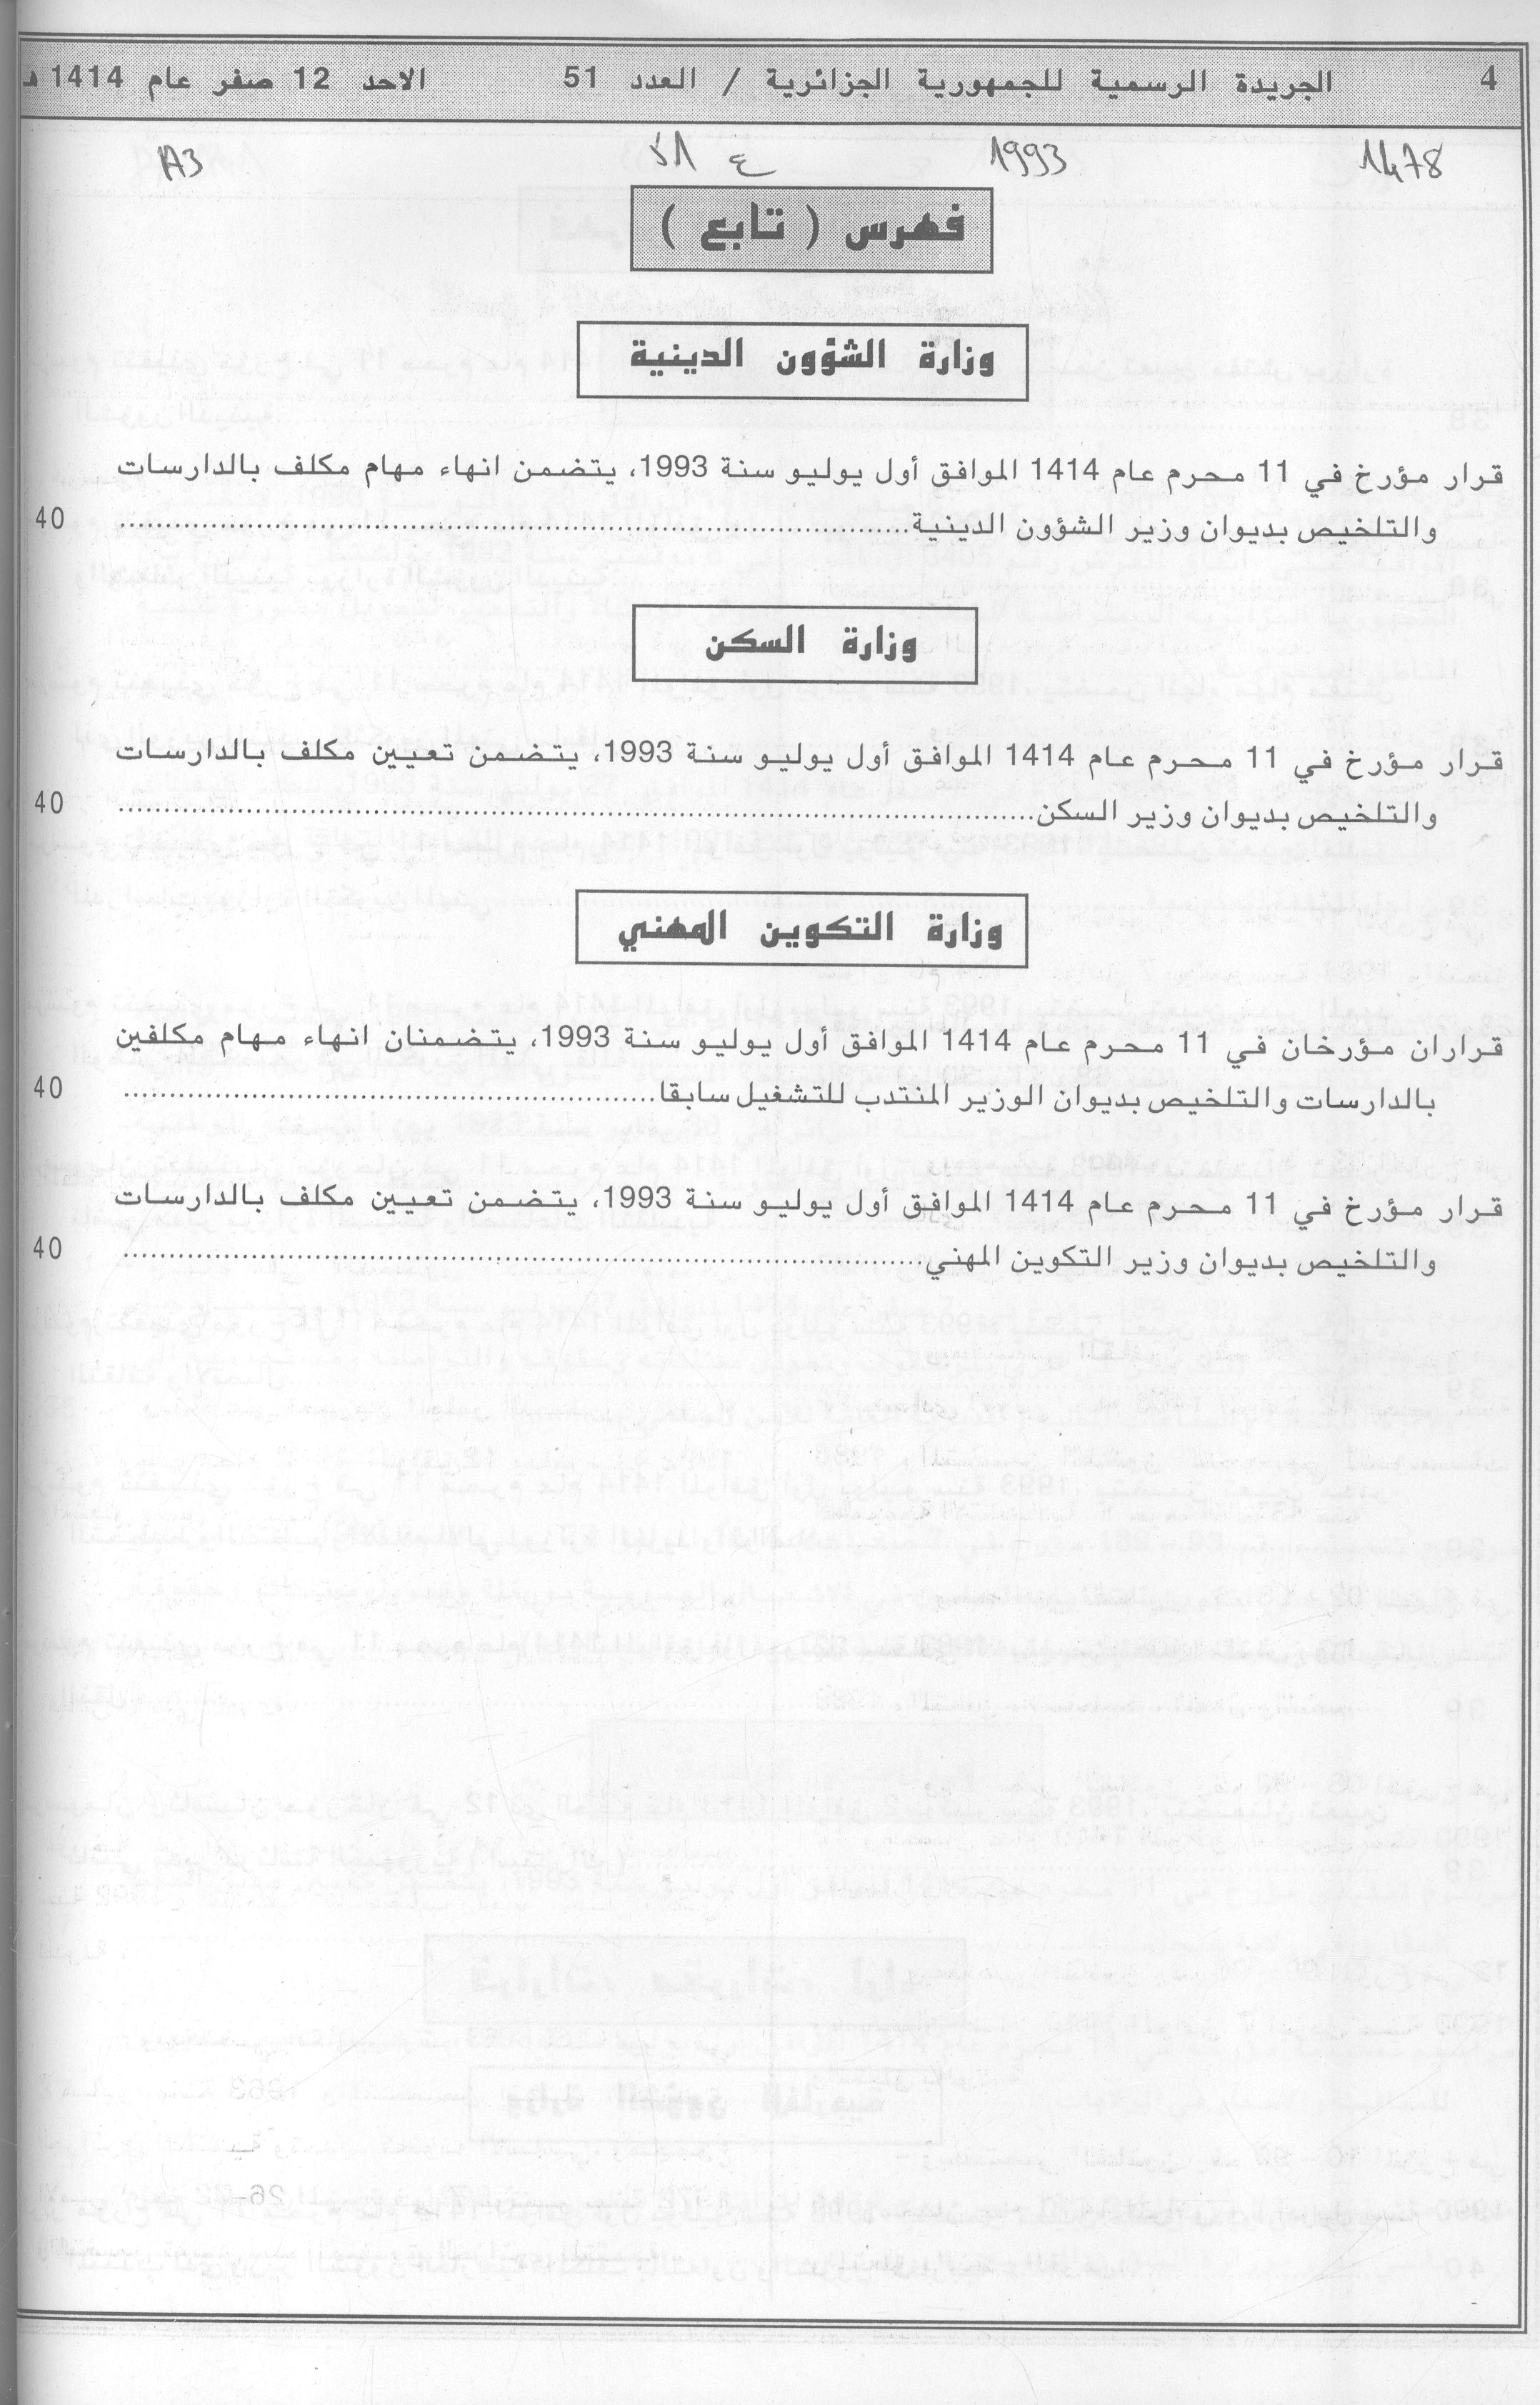 4 الجريدة الرسمية للجمهورية الجزائرية / العدد 51 الاحد 12 صفر عام 1414 هـ
1478 1993 ع 51
فهرس ( تابع )
وزارة الشؤون الدينية
قرار مؤرخ في 11 محرم عام 1414 الموافق أول يوليو سنة 1993، يتضمن انهاء مهام مكلف بالدارسات
والتلخيص بديوان وزير الشؤون الدينية........................................ 40
وزارة السكن
قرار مؤرخ في 11 محرم عام 1414 الموافق أول يوليو سنة 1993، يتضمن تعيين مكلف بالدارسات
والتلخيص بديوان وزير السكن........................................ 40
وزارة التكوين المهني
قراران مؤرخان في 11 محرم عام 1414 الموافق أول يوليو سنة 1993، يتضمنان انهاء مهام مكلفين
بالدارسات والتلخيص بديوان الوزير المنتدب للتشغيل سابقا........................................ 40
قرار مؤرخ في 11 محرم عام 1414 الموافق أول يوليو سنة 1993، يتضمن تعيين مكلف بالدارسات
والتلخيص بديوان وزير التكوين المهني........................................ 40